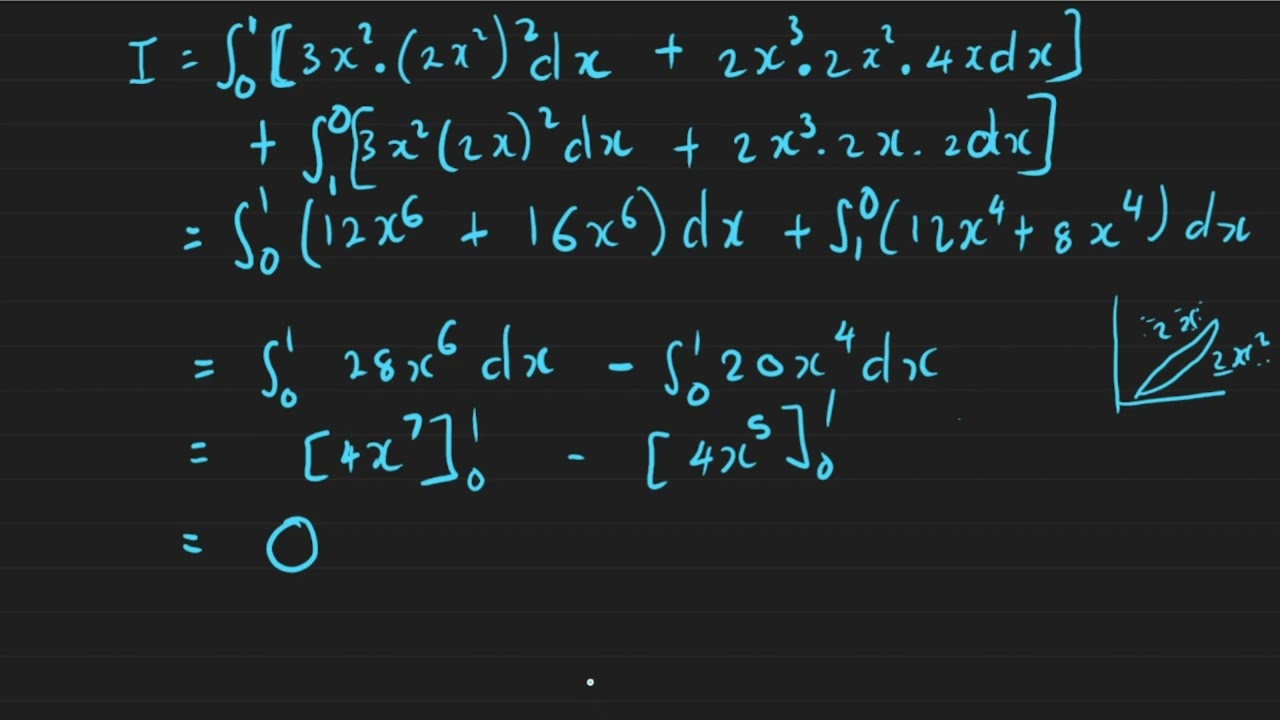 I = ∫₀¹ [3x² · (2x²)² dx + 2x³ · 2x² · 4x dx]
+ ∫₁⁰ [3x² (2x)² dx + 2x³ · 2x · 2dx]
= ∫₀¹ (12x⁶ + 16x⁶) dx + ∫₁⁰ (12x⁴ + 8x⁴) dx
= ∫₀¹ 28x⁶ dx - ∫₀¹ 20x⁴ dx
2x
2x²
= [4x⁷]₀¹ - [4x⁵]₀¹
= 0